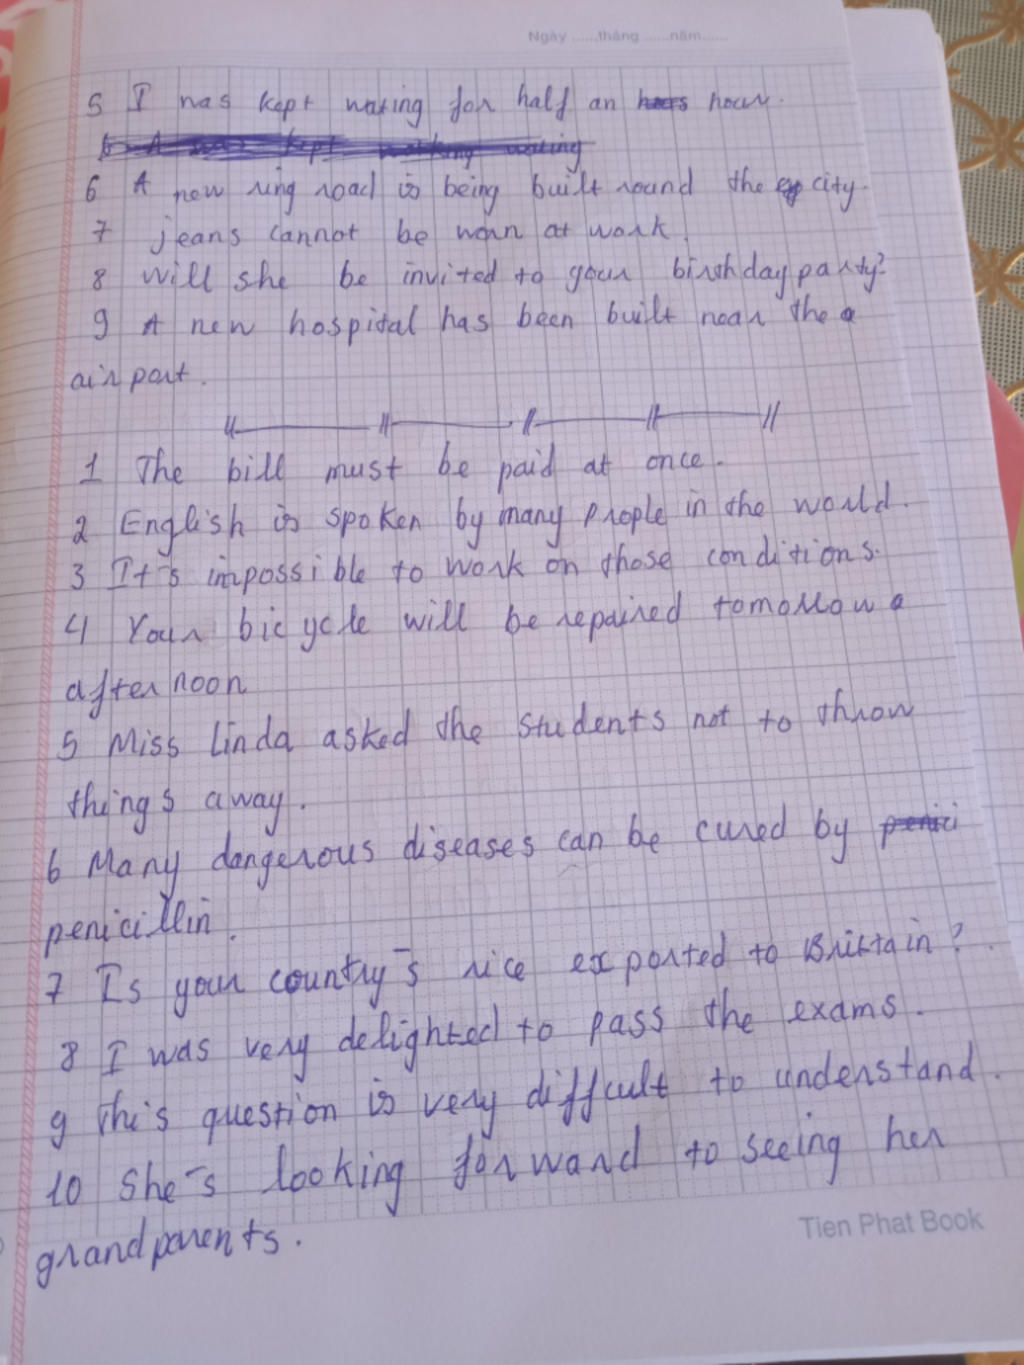 Ngày ......tháng ......năm......
5 I was kept wating for half an hour.
6 A new ring road is being built round the city.
7 jeans cannot be worn at work.
8 will she be invited to your birthday party?
9 A new hospital has been built near the a
airport.
1 The bill must be paid at once.
2 English is spoken by many people in the world.
3 It's impossible to work on those conditions.
4 Your bicycle will be repaired tomorrow a
afternoon
5 Miss linda asked the students not to throw
things away.
6 Many dangerous diseases can be cured by
penicillin.
7 Is your country's rice exported to Brittain?
8 I was very delighted to pass the exams.
9 This question is very difficult to understand.
10 She's looking forward to seeing her
grandparents.
Tien Phat Book